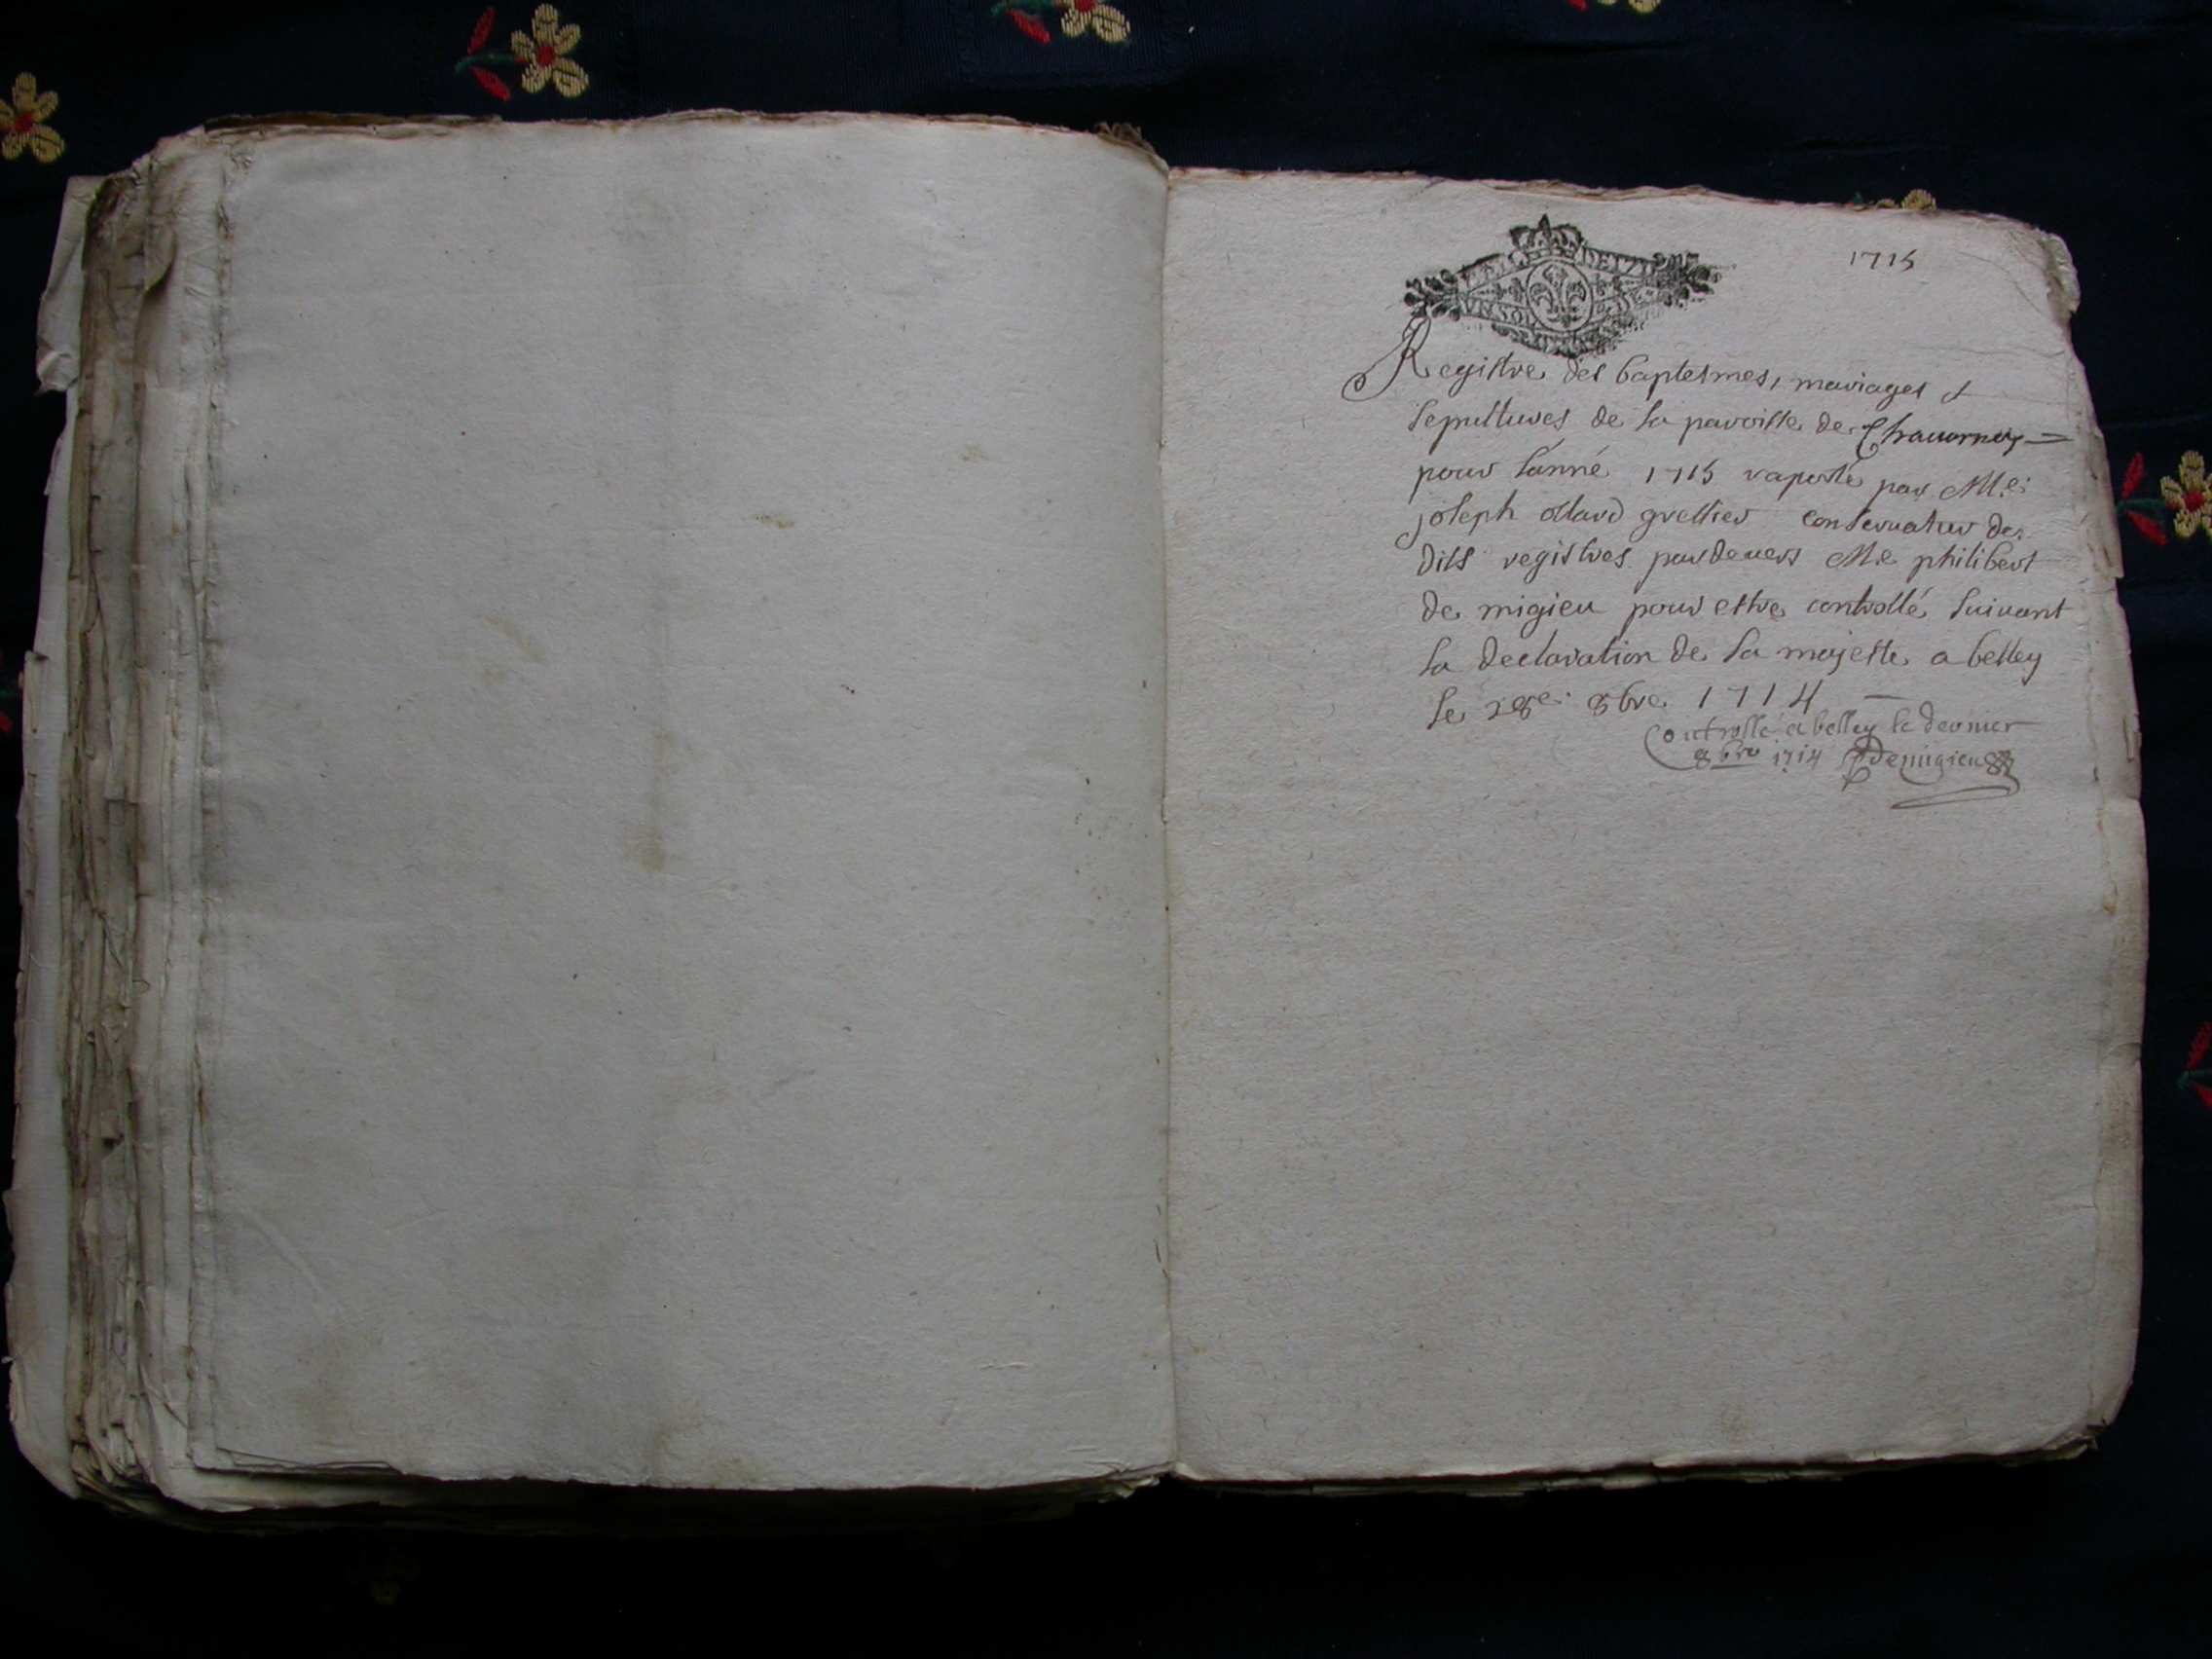 1715
Registre des baptesmes, mariages &
sepultures de la paroisse de Chauornay =
pour lanné 1715 raporté par Me:
joseph ollard greffier conseruateur des
dits registres pardeuers Me philibert
de migieu pour estre controllé suiuant
la declaration de sa majesté a belley
le 28e: 8bre 1714
Controllé a belley le dernier
8bre 1714 Demigieu